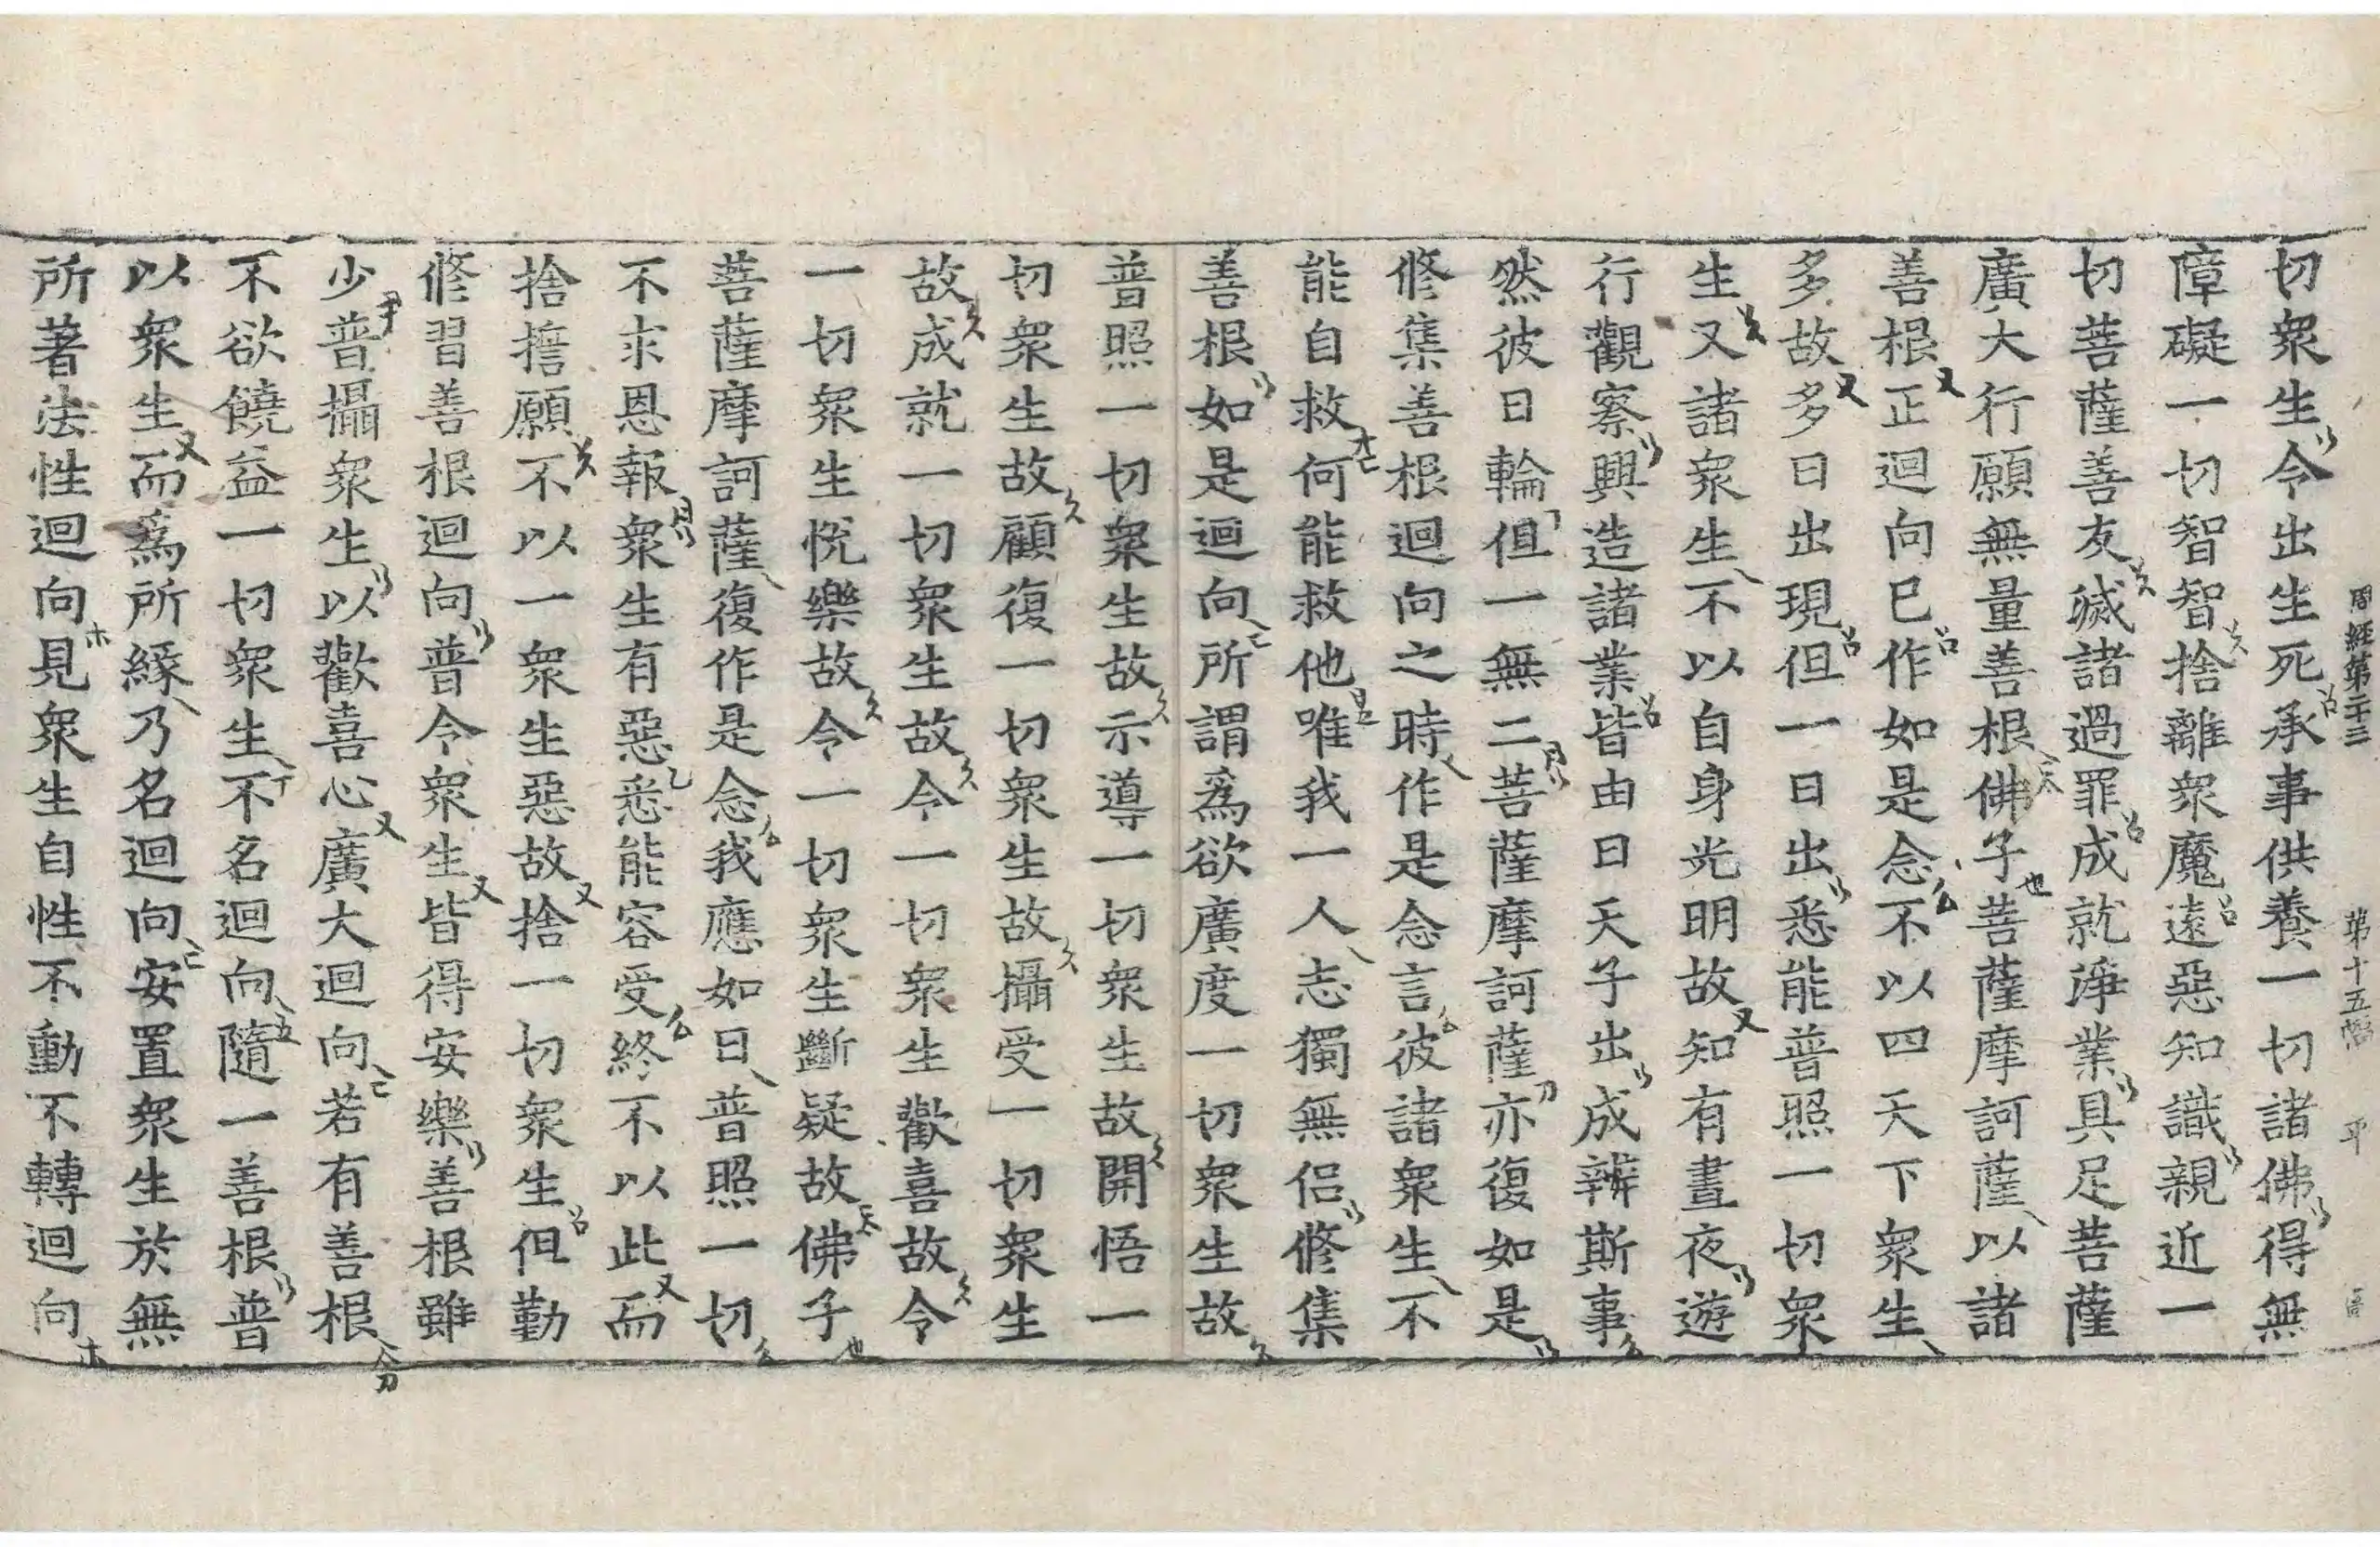 周經第二十三 第十五幅 平
切衆生令出生死承事供養一切諸佛得無
障礙一切智智捨離衆魔遠惡知識親近一
切菩薩善友滅諸過罪成就淨業具足菩薩
廣大行願無量善根佛子菩薩摩訶薩以諸
善根正迴向已作如是念不以四天下衆生
多故多日出現但一日出悉能普照一切衆
生又諸衆生不以自身光明故知有晝夜遊
行觀察興造諸業皆由日天子出成辨斯事
然彼日輪但一無二菩薩摩訶薩亦復如是
修集善根迴向之時作是念言彼諸衆生不
能自救何能救他唯我一人志獨無侶修集
善根如是迴向所謂爲欲廣度一切衆生故
普照一切衆生故示導一切衆生故開悟一
切衆生故顧復一切衆生故攝受一切衆生
故成就一切衆生故令一切衆生歡喜故令
一切衆生悅樂故令一切衆生斷疑故佛子
菩薩摩訶薩復作是念我應如日普照一切
不求恩報衆生有惡悉能容受終不以此而
捨擔願不以一衆生惡故捨一切衆生但勤
修習善根迴向普令衆生皆得安樂善根雖
少普攝衆生以歡喜心廣大迴向若有善根
不欲饒益一切衆生不名迴向隨一善根普
以衆生而爲所緣乃名迴向安置衆生於無
所著法性迴向見衆生自性不動不轉迴向